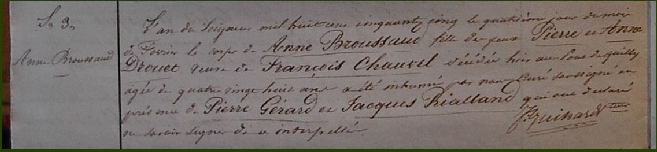 S. 3.
Anne Broussaud
L'an du Seigneur mil huit cent cinquante cinq le quatrième jour du moi
de Fevrier le corps de Anne Broussaud fille de feux Pierre et Anne
Drouet veuve de François Chauvel décédée hier au
agée de quatre vingt huit ans a été inhumé par nous Curé soussigné en
présence de Pierre Gérard et Jacques Rialland qui ont déclaré
ne savoir signer de ce interpellés
Guihard